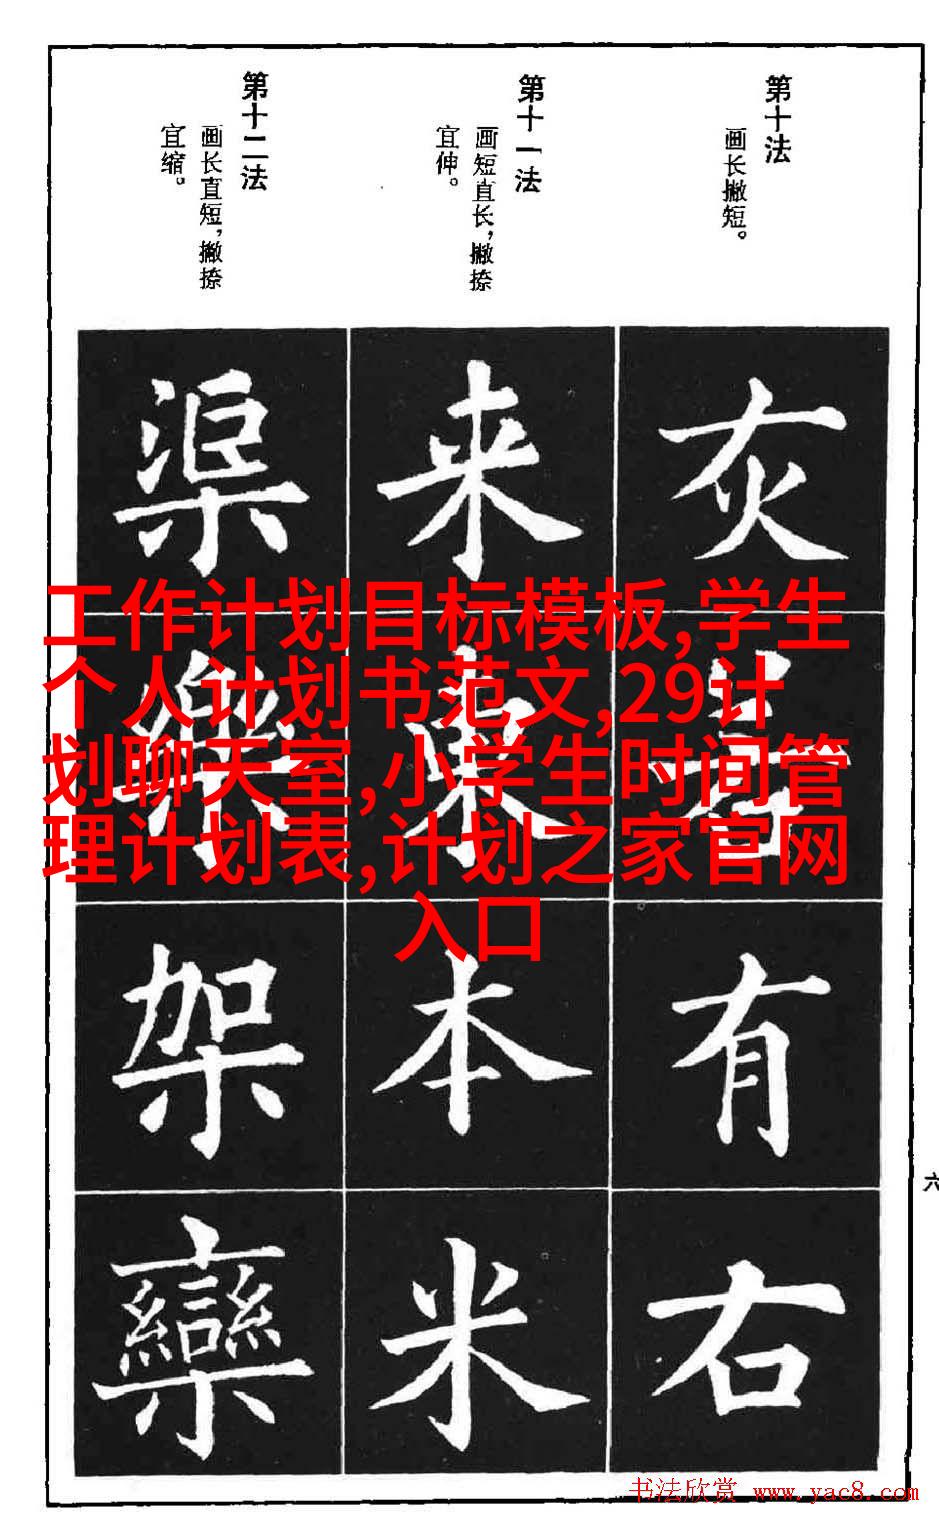 第十法
画长撇短。
第十一法
画短直长，撇捺
宜伸。
第十二法
画长直短，撇捺
宜缩。
灰
若
有
右
来
東
本
米
渠
樂
架
欒
工作计划目标模板,学生
个人计划书范文,29计
划聊天室,小学生时间管
理计划表,计划之家官网
入口
六
书法欣赏 www.yac8.com